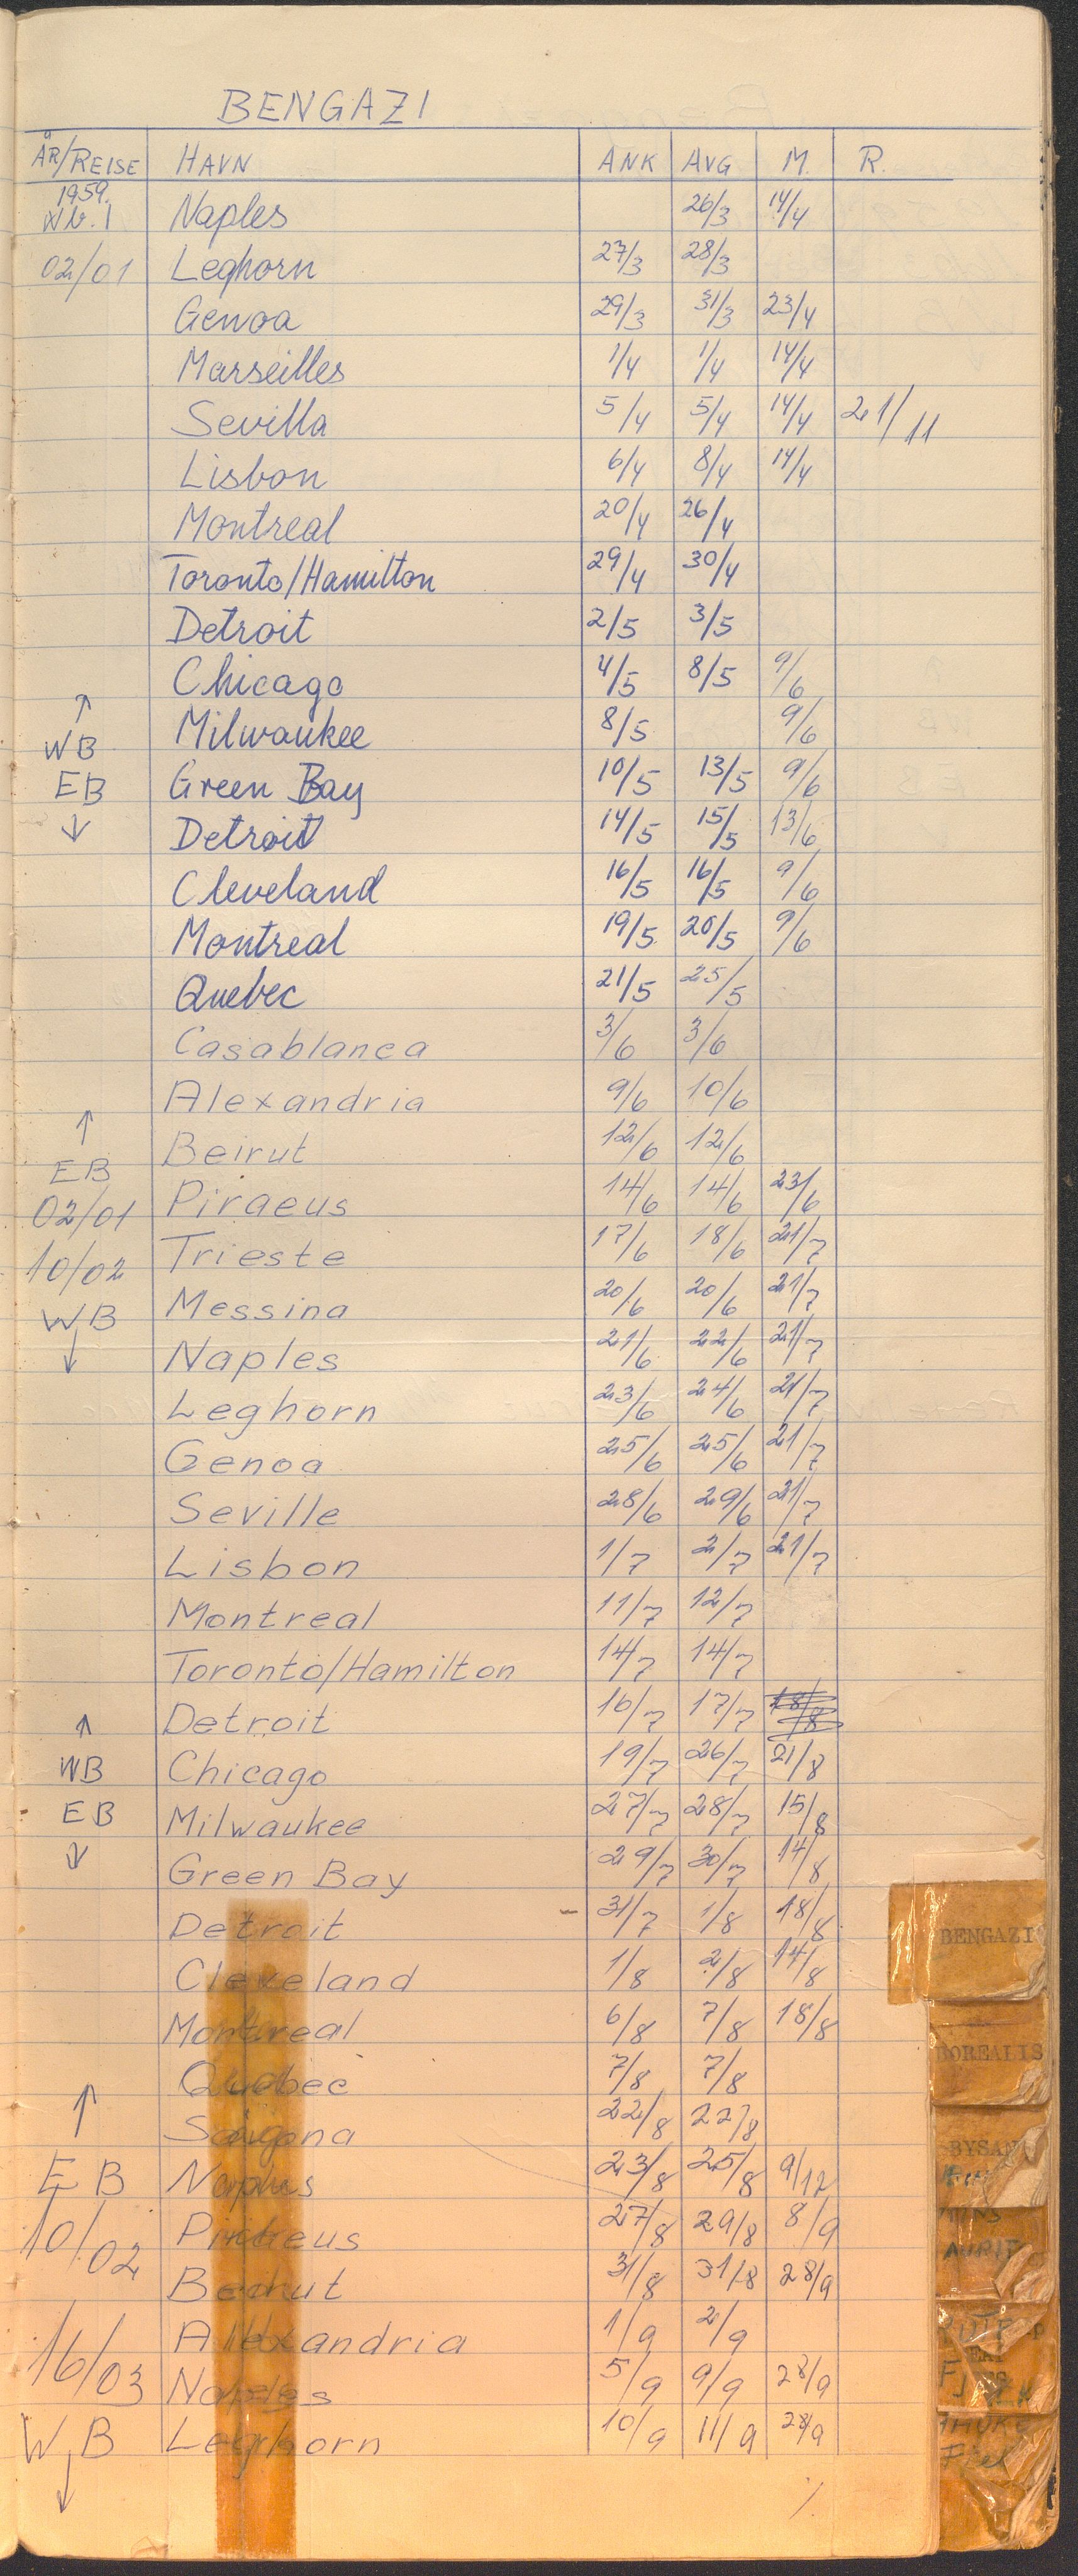 BENGAZI
ÅR/REISE HAVN ANK AVG M. R.
1959.
Wb. 1 Naples 26/3 14/4
02/01 Leghorn 27/3 28/3
Genoa 29/3 31/3 23/4
Marseilles 1/4 1/4 14/4
Sevilla 5/4 5/4 14/4 21/11
Lisbon 6/4 8/4 14/4
Montreal 20/4 26/4
Toronto/Hamilton 29/4 30/4
Detroit 2/5 3/5
Chicago 4/5 8/5 9/6
↑
WB Milwaukee 8/5 9/6
EB Green Bay 10/5 13/5 9/6
↓ Detroit 14/5 15/5 13/6
Cleveland 16/5 16/5 9/6
Montreal 19/5 20/5 9/6
Quebec 21/5 25/5
Casablanca 3/6 3/6
Alexandria 9/6 10/6
↑ Beirut 12/6 12/6
EB
02/01 Piraeus 14/6 14/6 23/6
10/02 Trieste 17/6 18/6 21/7
WB Messina 20/6 20/6 21/7
↓ Naples 21/6 22/6 21/7
Leghorn 23/6 24/6 21/7
Genoa 25/6 25/6 21/7
Seville 28/6 29/6 21/7
Lisbon 1/7 2/7 21/7
Montreal 11/7 12/7
Toronto/Hamilton 14/7 14/7
↑ Detroit 16/7 17/7 18/8
WB Chicago 19/7 26/7 21/8
EB Milwaukee 27/7 28/7 15/8
↓ Green Bay 29/7 30/7 14/8
Detroit 31/7 1/8 18/8
Cleveland 1/8 2/8 14/8
Montreal 6/8 7/8 18/8
Quebec 7/8 7/8
↑ 22/8 22/8
EB Naples 23/8 25/8 9/12
10/02 Piraeus 27/8 29/8 8/9
Beirut 31/8 31/8 28/9
Alexandria 1/9 2/9
16/03 Naples 5/9 9/9 28/9
WB Leghorn 10/9 11/9 28/9
↓
BENGAZI
BOREALIS
BYSANT